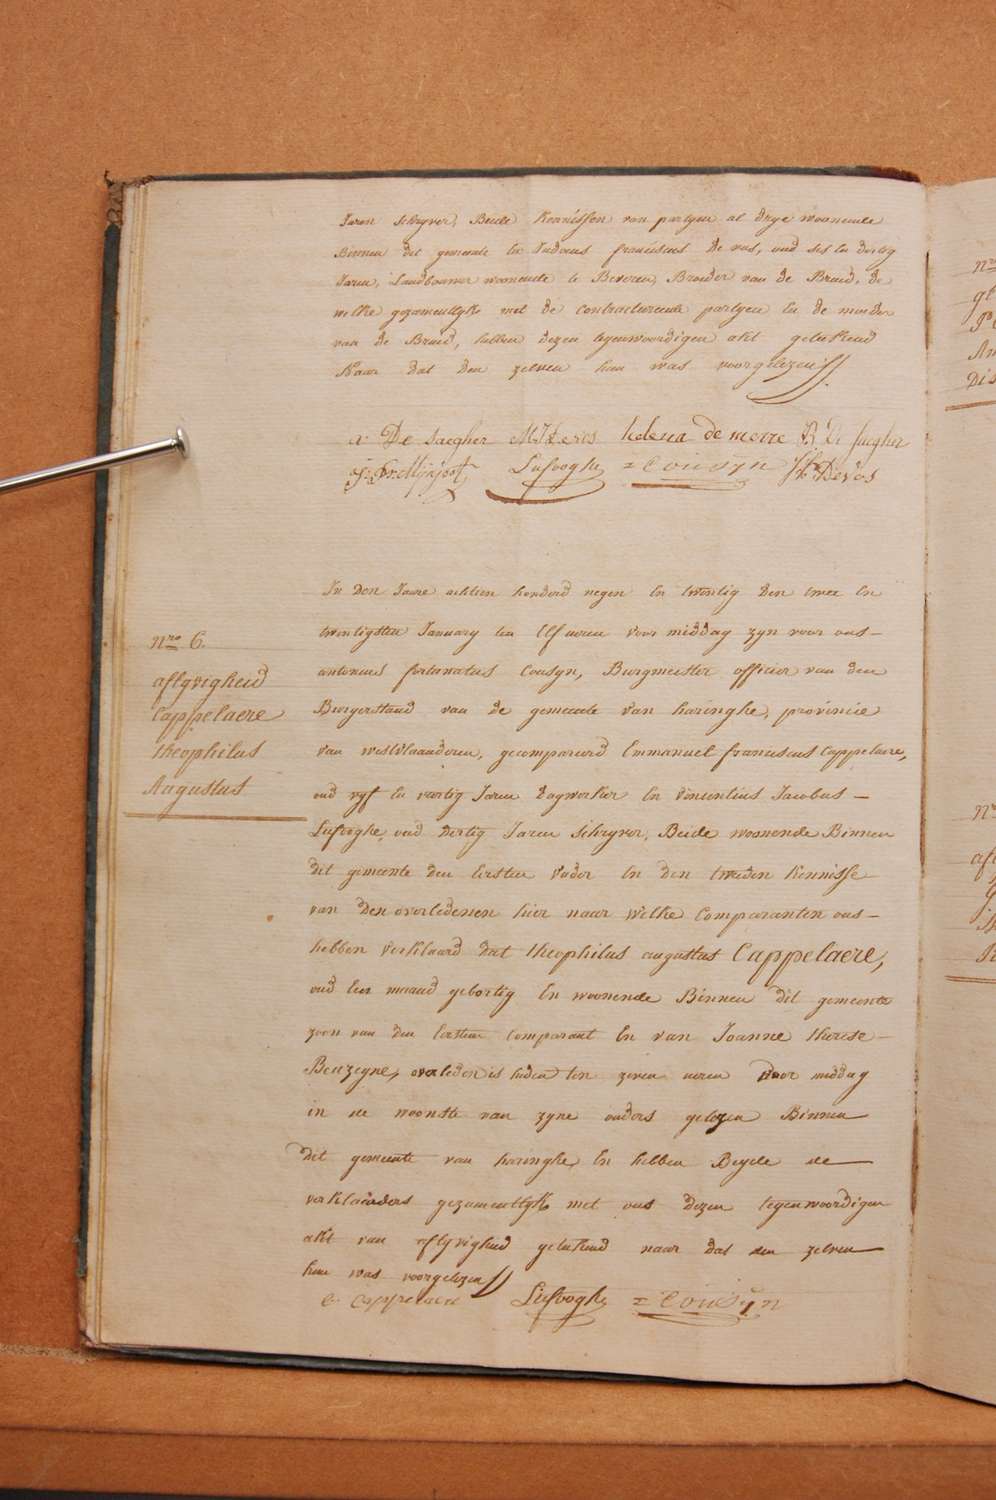 Jaren schryver, Beide Kennissen van partyen al drye woonende
Binnen dit gemeente En Judocus franciscus De vos, oud ses En dertig
Jaren, Landbouwer woonende te Beveren, Broeder van de Bruid, de
welke gezamentlyk met de contracteerende partyen En de moeder
van de Bruid, hebben dezen tegenwoordigen akt geteekend
Naar dat den zelven hun was voorgelezen
De Saegher M J Devos helena de merre B De Saegher
Lefooghe Cousyn Devos
In den Jaere achtien honderd negen En twintig den twee En
twintigsten January ten Elf uren voor middag zyn voor ons
antonius fortunatus Cousyn, Burgmeester officier van den
Burgerstand van de gemeente van haringhe, provincie
van westvlaanderen, gecompareerd Emmanuel franciscus Cappelaere,
oud vyf En veertig Jaren dagwerker En vincentius Jacobus
Lefooghe, oud dertig Jaren schryver, Beide woonende Binnen
dit gemeente den Eersten vader En den tweeden kennisse
van den overledenen hier naer welke Comparanten ons
hebben verklaard dat theophilus augustus Cappelaere,
oud Een maand gebortig En woonende Binnen dit gemeente
zoon van den Eersten Comparant En van Joanne therese
Beuzegne, overleden is heden ten zeven uren voor middag
in de woonste van zyne ouders gelegen Binnen
dit gemeente van haringhe, En hebben Beyde de
verklaarders gezamentlyk met ons dezen tegenwoordigen
akt van aflyvigheid geteekend naar dat den zelven
hun was voorgelezen
e. Cappelaere Lefooghe Cousyn
nro 6.
aflyvigheid
Cappelaere
theophilus
Augustus